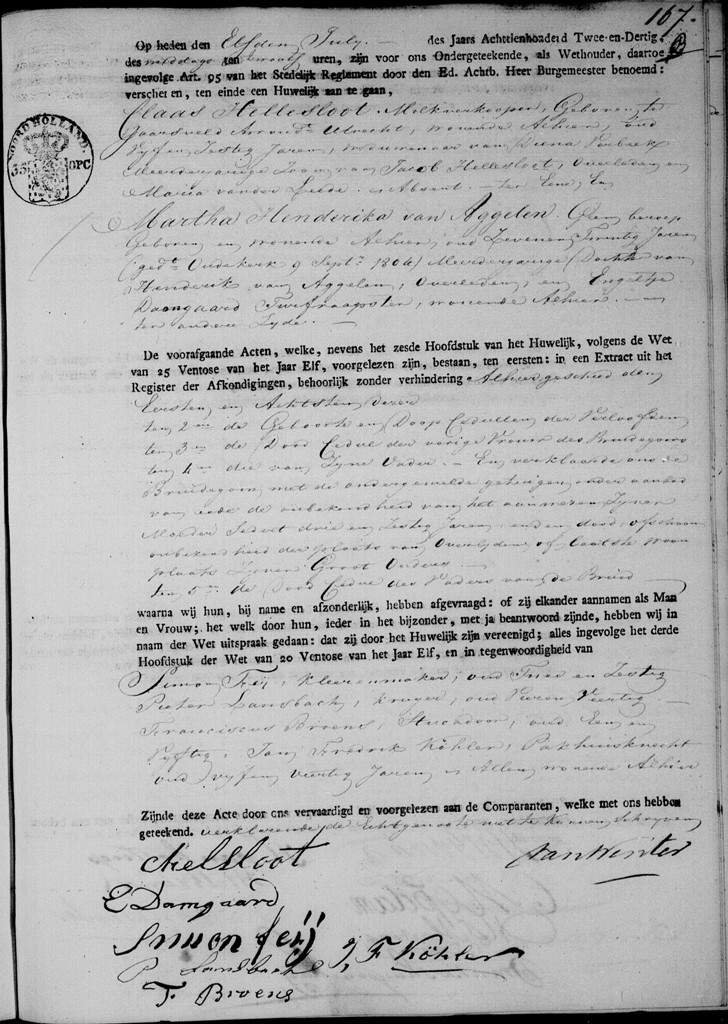 167.
Op heden den Elfden July. des Jaars Achttienhonderd Twee-en-Dertig,
des middags ten uren, zijn voor ons Ondergeteekende, als Wethouder, daartoe
ingevolge Art. 95 van het Stedelijk Reglement door den Ed. Achtb. Heer Burgemeester benoemd:
verschenen, ten einde een Huwelijk aan te gaan,
NOORD HOLLAND
35 OPC
Claas Hellesloot, Melkverkooper, Geboren te
Jaarsveld Arrond. Utrecht, wonende Alhier, oud
Vyf en Zestig Jaren, weduwenaar van
Meerderjarige Zoon van Jacob Hellesloot, Overleden en
Maria vander Absent. ter Eene, En
Martha Henderika van Aggelen. Geen beroep
Geboren en wonende Alhier, oud Zeven en Twintig Jaren
(ged. Oudekerk 9 Sept. 1804) Meerderjarige Dochter van
Henderik van Aggelen, Overleden, en Engeltje
Damgaard wonende Alhier.
ter andere Zyde.
De voorafgaande Acten, welke, nevens het zesde Hoofdstuk van het Huwelijk, volgens de Wet
van 25 Ventose van het Jaar Elf, voorgelezen zijn, bestaan, ten eersten: in een Extract uit het
Register der Afkondigingen, behoorlijk zonder verhindering Alhier geschied den
Eersten en Achtsten dezer
ten 2en de Geboorte en Doop Cedullen der Verloofden
ten 3en de Dood Cedul der vorige Vrouw des Bruidegoms
ten 4en die van Zyne Vader. En verklaarde ons de
Bruidegom, met de ondergemelde getuigen, onder aanbod
van eede de onbekendheid van het aanwezen Zyner
Moeder Sedert drie en Zestig Jaren,
onbekendheid der plaats van Overlyden of laatste woon
plaats Zyner Groot Ouders
ten 5en de Dood Cedul des Vaders van de Bruid
waarna wij hun, bij name en afzonderlijk, hebben afgevraagd: of zij elkander aannamen als Man
en Vrouw; het welk door hun, ieder in het bijzonder, met ja beantwoord zijnde, hebben wij in
naam der Wet uitspraak gedaan: dat zij door het Huwelijk zijn vereenigd; alles ingevolge het derde
Hoofdstuk der Wet van 20 Ventose van het Jaar Elf, en in tegenwoordigheid van
Simon Feij, Kleermaker, oud Twee en Zestig
Pieter Lansbach, Kruyer, oud Vier en Veertig
Franciscus Broens, Stucadoor, oud Een en
Vyftig, Jan Fredrik Köhler, Pakhuisknecht
oud vyf en veertig Jaren, Allen wonende Alhier
Zijnde deze Acte door ons vervaardigd en voorgelezen aan de Comparanten, welke met ons hebben
geteekend. verklarende de Echtgenoote niet te Kunnen Schryven
van Winter
E Damgaard
Simon feij
P Lansbach J, F Köhler
F Broens